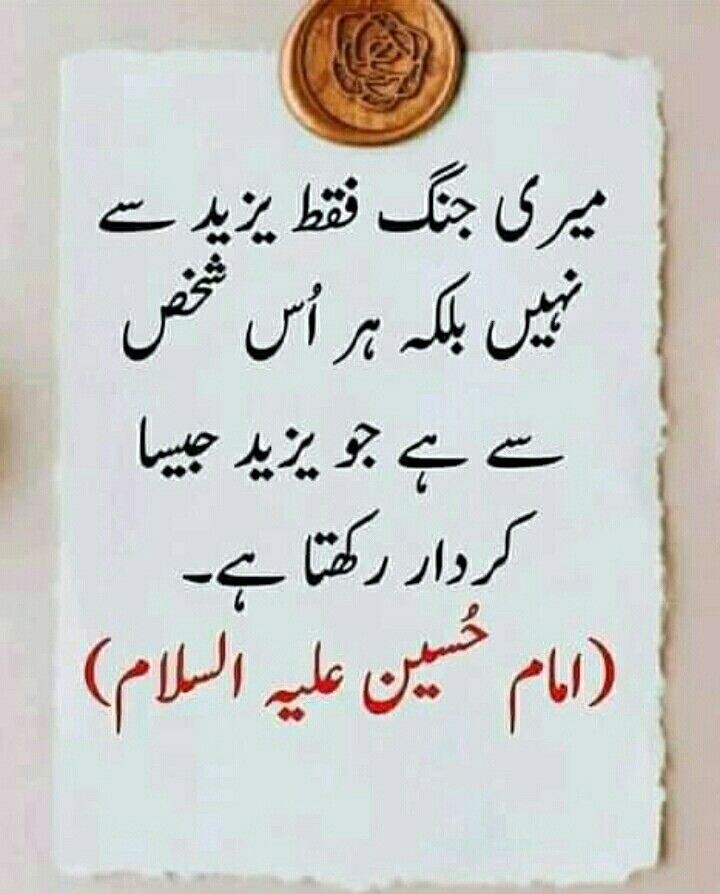 میری جنگ فقط یزید سے
نہیں بلکہ ہر اُس شخص
سے ہے جو یزید جیسا
کردار رکھتا ہے۔
(امام حُسین علیہ السلام)